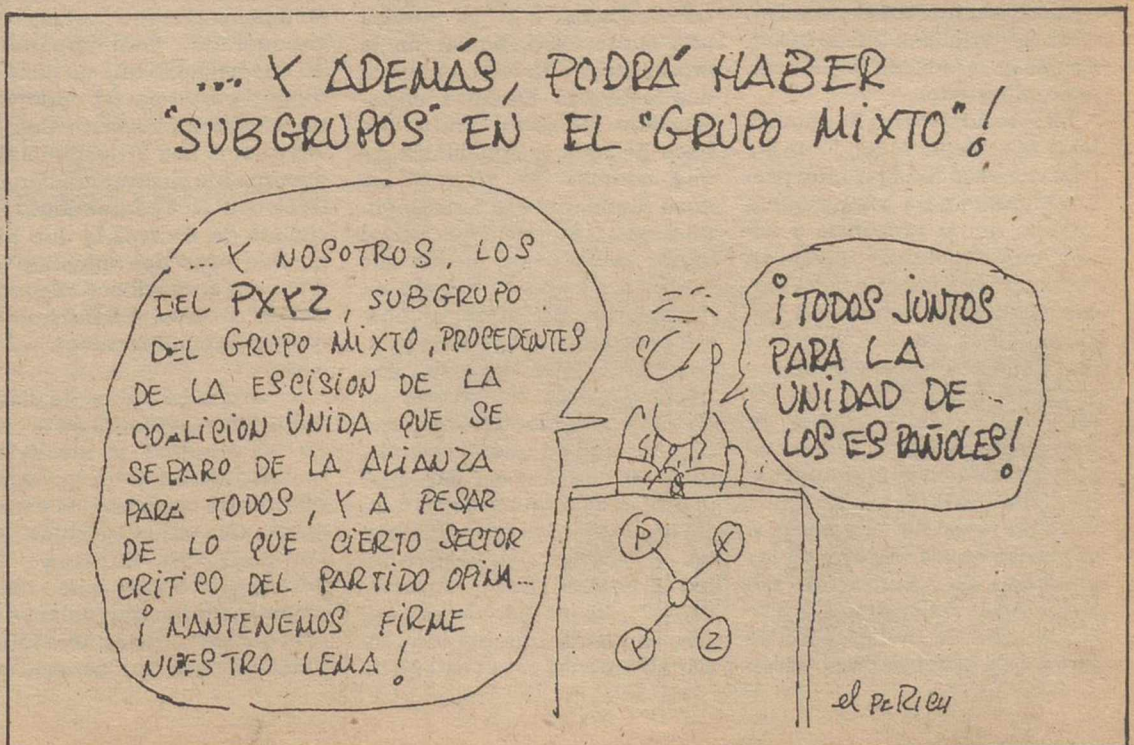 ... Y ADEMÁS, PODRÁ HABER
"SUBGRUPOS" EN EL "GRUPO MIXTO"!
... Y NOSOTROS, LOS
DEL PXYZ, SUBGRUPO
DEL GRUPO MIXTO, PROCEDENTES
DE LA ESCISION DE LA
COALICION UNIDA QUE SE
SEPARO DE LA ALIANZA
PARA TODOS, Y A PESAR
DE LO QUE CIERTO SECTOR
CRITICO DEL PARTIDO OPINA...
¡MANTENEMOS FIRME
NUESTRO LEMA!
¡TODOS JUNTOS
PARA LA
UNIDAD DE
LOS ESPAÑOLES!
P X
Y Z
el PERICH